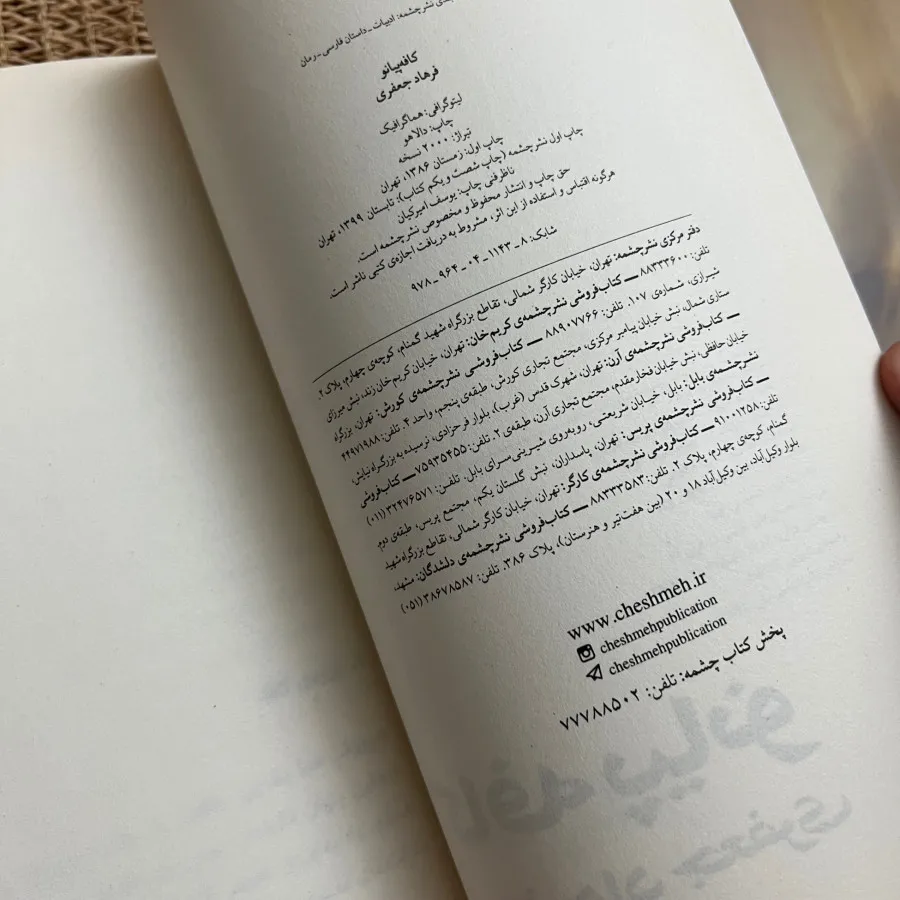 بندی نشرچشمه: ادبیات ـ داستان فارسی ـ رمان
کافه‌پیانو
فرهاد جعفری
لیتوگرافی: هماگرافیک
چاپ: دالاهو
تیراژ: ۲۰۰۰ نسخه
چاپ اول: زمستان ۱۳۸۶، تهران
چاپ اول نشرچشمه (چاپ شصت و یکم کتاب): تابستان ۱۳۹۹، تهران
ناظر فنی چاپ: یوسف امیرکیان
حق چاپ و انتشار محفوظ و مخصوص نشرچشمه است.
هرگونه اقتباس و استفاده از این اثر، مشروط به دریافت اجازه‌ی کتبی ناشر است.
شابک: ۸ ـ ۱۱۴۳ ـ ۰۴ ـ ۹۶۴ ـ ۹۷۸
دفتر مرکزی نشرچشمه: تهران، خیابان کارگر شمالی، تقاطع بزرگراه شهید گمنام، کوچه‌ی چهارم، پلاک ۲.
تلفن: ۸۸۳۳۳۶۰۰ — کتاب‌فروشی نشرچشمه‌ی کریم‌خان: تهران، خیابان کریم‌خان زند، نبش میرزای
شیرازی، شماره‌ی ۱۰۷. تلفن: ۸۸۹۰۷۷۶۶ — کتاب‌فروشی نشرچشمه‌ی کورش: تهران، بزرگراه
ستاری شمال، نبش خیابان پیامبر مرکزی، مجتمع تجاری کورش، طبقه‌ی پنجم، واحد ۴. تلفن: ۴۴۹۷۱۹۸۸
— کتاب‌فروشی نشرچشمه‌ی آرن: تهران، شهرک قدس (غرب)، بلوار فرحزادی، نرسیده به بزرگراه نیایش،
خیابان حافظی، نبش خیابان فخار مقدم، مجتمع تجاری آرن، طبقه‌ی ۲. تلفن: ۷۵۹۳۵۴۵۵ — کتاب‌فروشی
نشرچشمه‌ی بابل: بابل، خیابان شریعتی، روبه‌روی شیرینی سرای بابل. تلفن: ۳۲۴۷۶۵۷۱ (۰۱۱)
— کتاب‌فروشی نشرچشمه‌ی پریس: تهران، پاسداران، نبش گلستان یکم، مجتمع پریس، طبقه‌ی دوم.
تلفن: ۹۱۰۰۱۲۵۸ — کتاب‌فروشی نشرچشمه‌ی کارگر: تهران، خیابان کارگر شمالی، تقاطع بزرگراه شهید
گمنام، کوچه‌ی چهارم، پلاک ۲. تلفن: ۸۸۳۳۳۵۸۳ — کتاب‌فروشی نشرچشمه‌ی دلشدگان: مشهد،
بلوار وکیل‌آباد، بین وکیل‌آباد ۱۸ و ۲۰ (بین هفت‌تیر و هنرستان)، پلاک ۳۸۶. تلفن: ۳۸۶۷۸۵۸۷ (۰۵۱)
www.cheshmeh.ir
cheshmehpublication
cheshmehpublication
پخش کتاب چشمه: تلفن: ۷۷۷۸۸۵۰۲